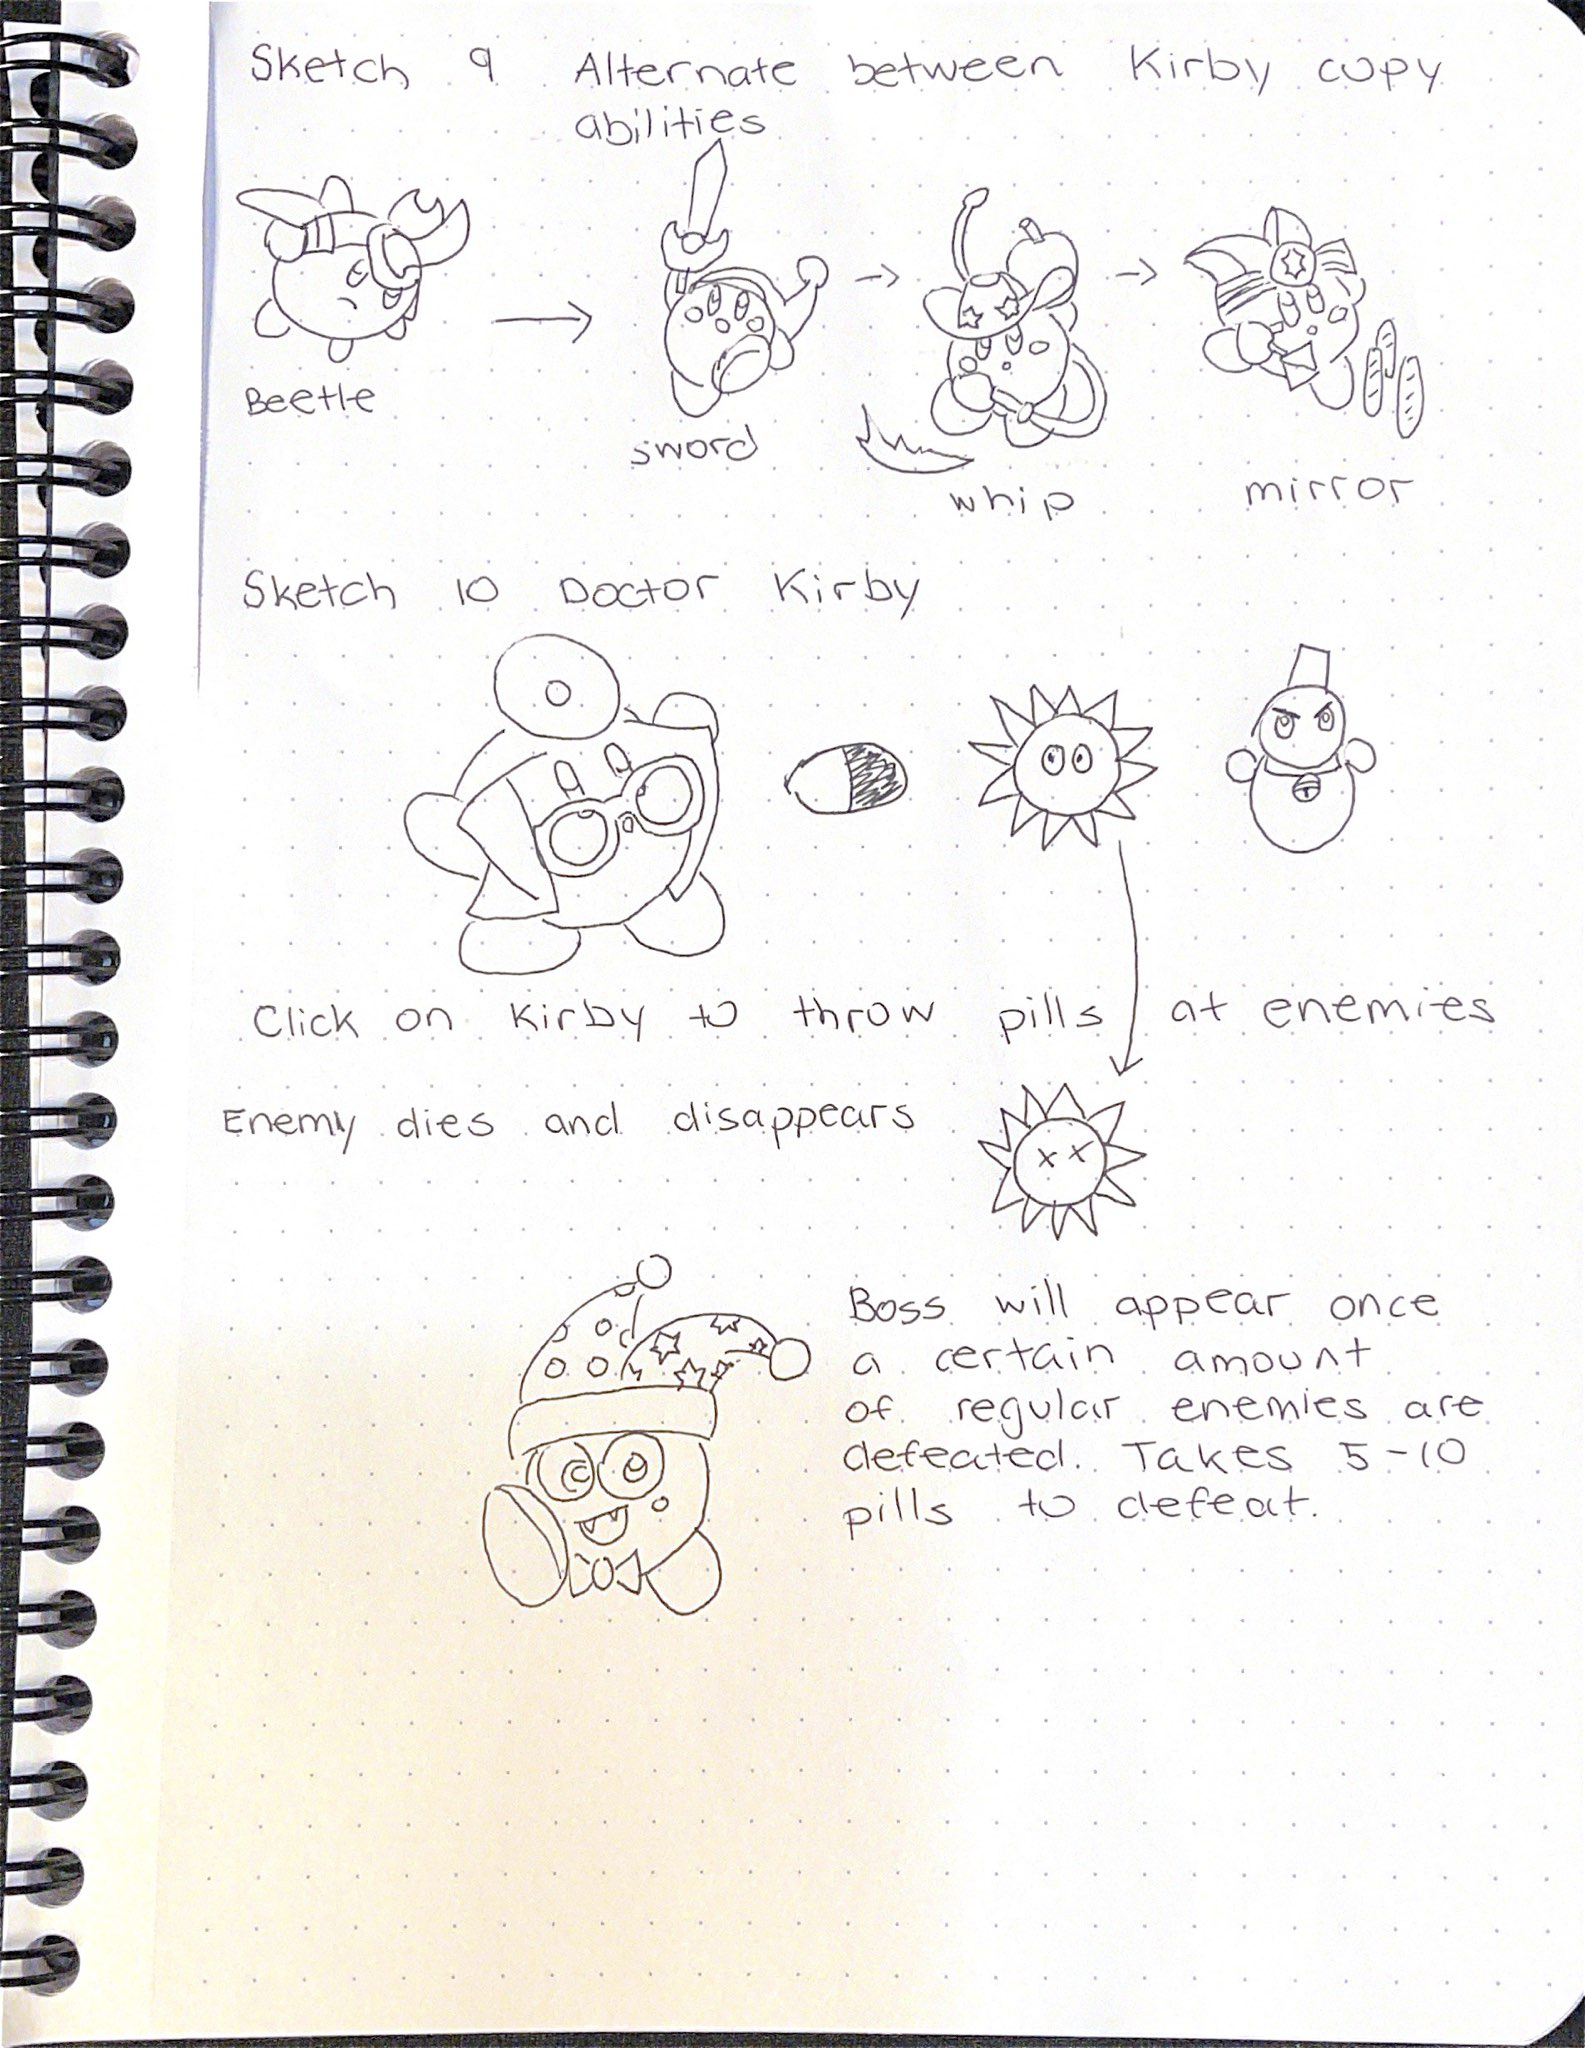 Sketch 9 Alternate between Kirby copy
abilities
Beetle
sword
whip
mirror
Sketch 10 Doctor Kirby
Click on Kirby to throw pills at enemies
Enemy dies and disappears
Boss will appear once
a certain amount
of regular enemies are
defeated. Takes 5-10
pills to defeat.